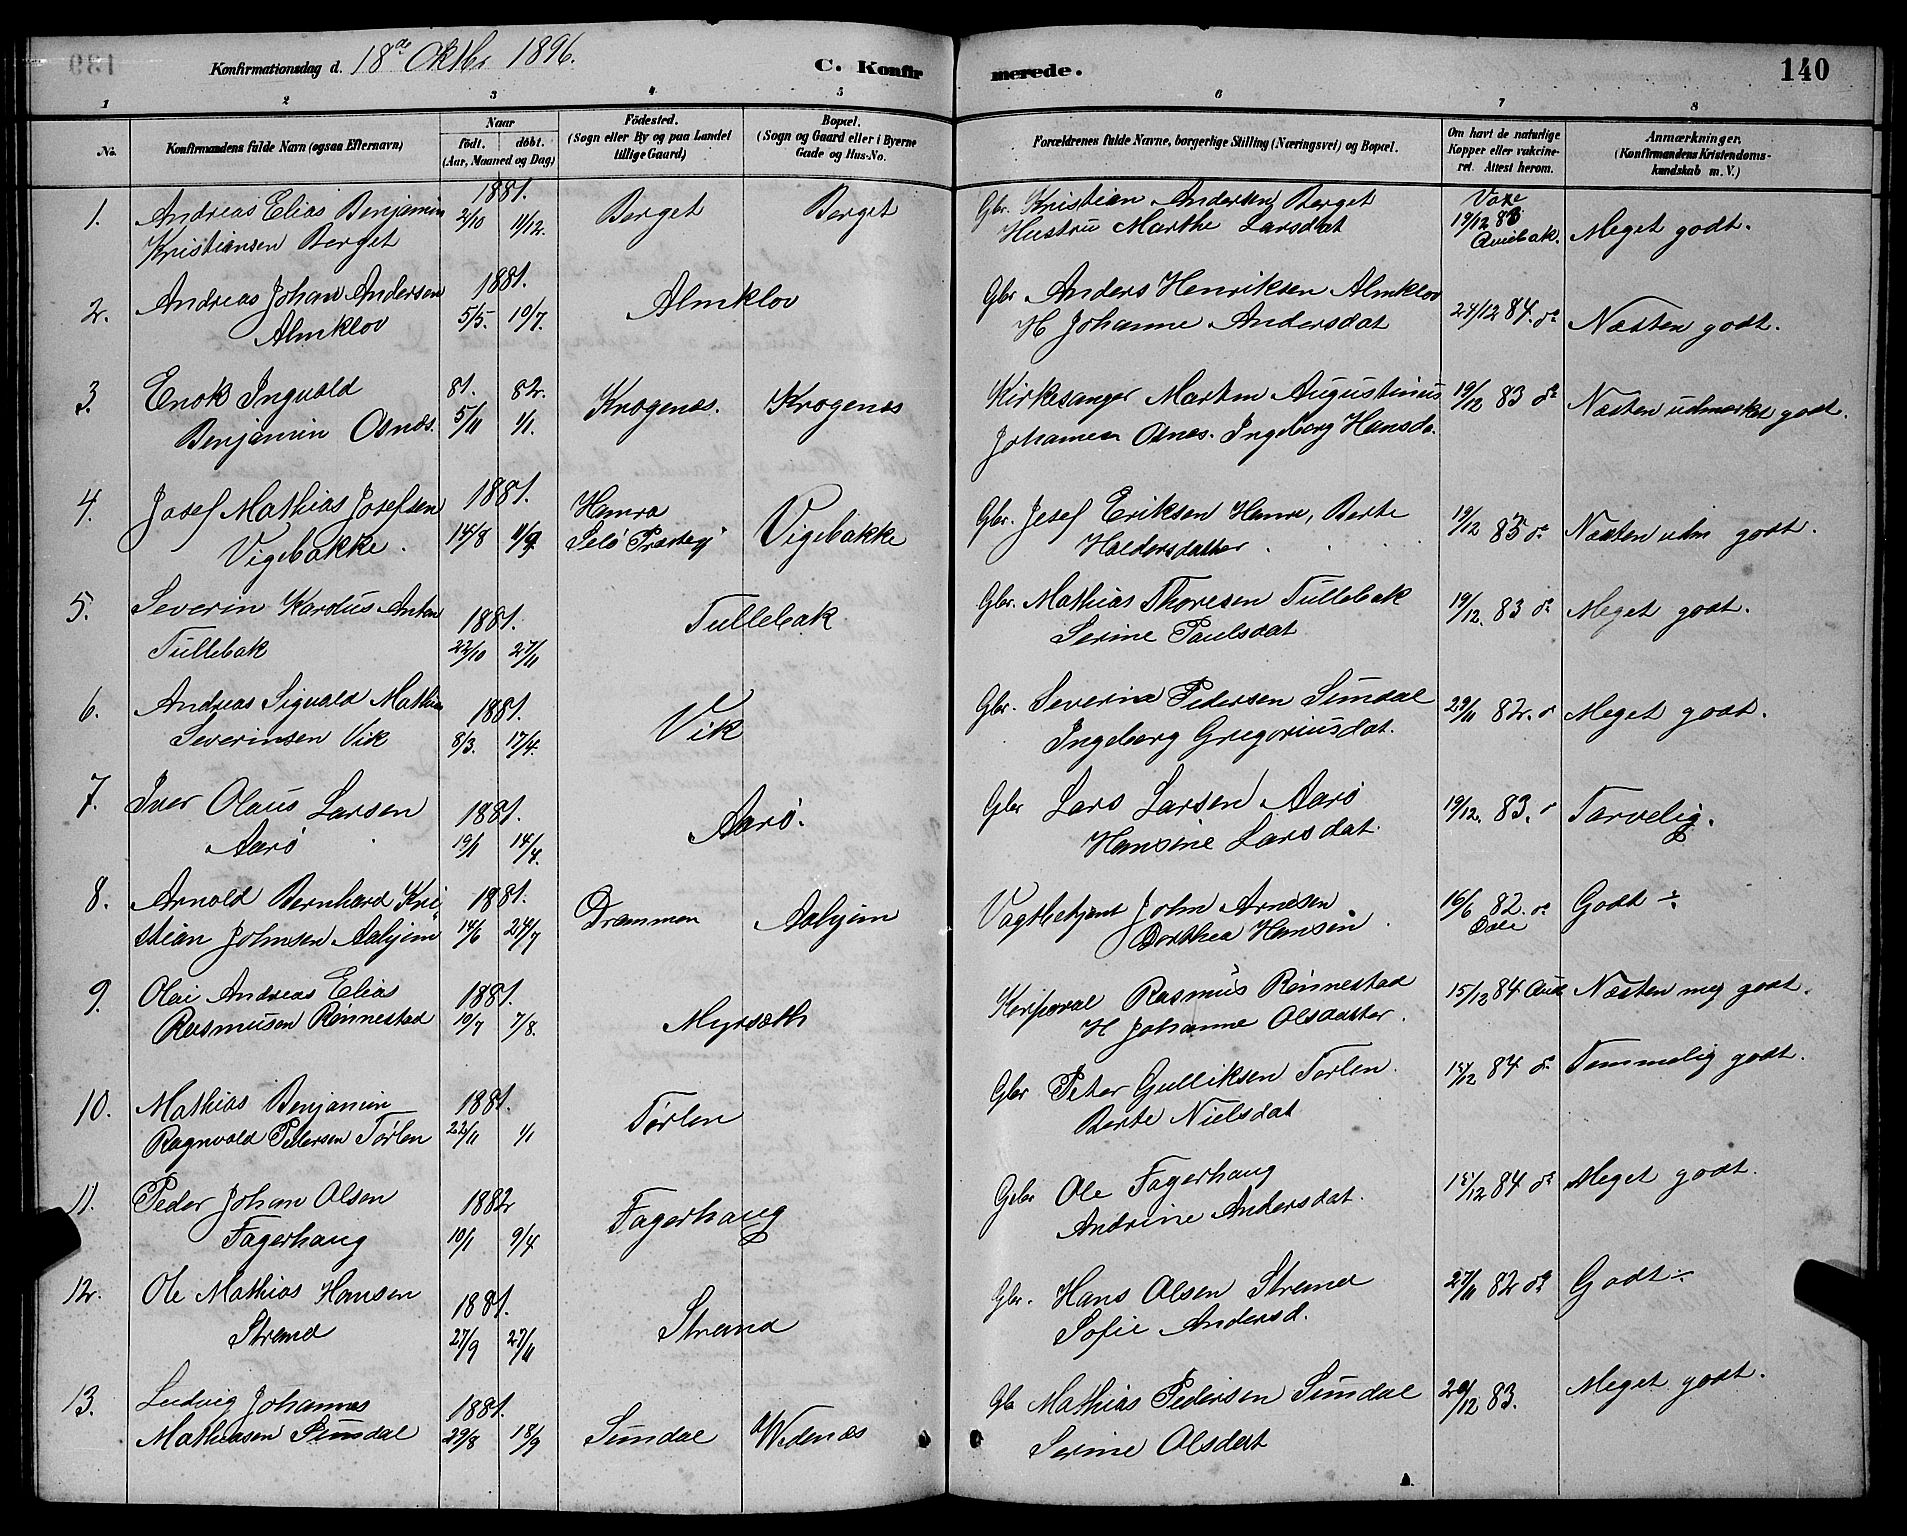 Konfirmationsdag d. 18de Oktbr 1896. C. Konfirmerede. 140
1 2 3 4 5 6 7 8
No.
Konfirmandens fulde Navn (ogsaa Efternavn)
Naar
födt. döbt.
(Aar, Maaned og Dag)
Födested.
(Sogn eller By og paa Landet
tillige Gaard)
Bopæl.
(Sogn og Gaard eller i Byerne
Gade og Hus-No.
Forældrenes fulde Navne, borgerlige Stilling (Næringsvei) og Bopæl.
Om havt de naturlige
Kopper eller vakcine-
ret. Attest herom.
Anmærkninger.
(Konfirmandens Kristendoms-
kundskab m. V.)
1. Andreas Elias Benjamin 1881. Berget Berget Gbr. Kristian Andersen Berget Vaxe
Kristiansen Berget 2/10 11/12. Hustru Marthe Larsdat 19/12 83 Meget godt.
2. Andreas Johan Andersen 1881. Almklov Gbr Anders Henriksen Almklov
Almklov 5/5. 10/7. H Johanne Andersdat 24/12 84. do Næsten godt.
3. Enok Ingvald 81. 82. Krogenæs. Krogenæs Kirkesanger Martin Augustinus 19/12 83 do Næsten udmerket godt.
Benjamin Osnæs. 5/11 1/1. Johansen Osnes. Ingeborg Hansd.
4. Josef Mathias Josefsen 1881. Hamre Vigebakke Gbr. Josef Eriksen Hamre, Berte 19/12 83 do Næsten udm godt.
Vigebakke. 14/8 11/9 Selö Præstegj Haldorsdatter
5. Severin Karolus Anton 1881. Tullebak Gbr. Mathias Thoresen Tullebak 19/12. 83 do Meget godt.
Tullebak 22/10 27/11 Serine Paulsdat
6. Andreas Sigvald Mathias 1881. Vik Gbr. Severin Pedersen Sundal 29/11 82. do Meget godt.
Severinsen Vik 8/3. 17/4. Ingeborg Gregoriusdat.
7. Iver Olaus Larsen 1881. Aarö. Gbr Lars Larsen Aarö 19/12. 83. do Tarvelig.
Aarö 19/1 14/4. Hansine Larsdat.
8. Arnold Bernhard Kri- 1881. Drammen Aahjem Vagtbetjent John Arnesen 16/6 82. do Godt ÷
stian Johnsen Aahjem 14/6 24/7 Dorthea Hansen
9. Olai Andreas Elias 1881. Myrsæth Korporal Rasmus Rönnestad 15/12 84 Næsten meg godt.
Rasmusen Rönnestad 19/7 7/8. H Johanne Olsdatter.
10. Mathias Benjamin 1881. Törlen Gbr Peter Gulliksen Torlen 15/12 84 do Temmelig godt.
Ragnvald Petersen Törlen 22/11 1/1 Berte Nielsdat
11. Peder Johan Olsen 1882 Fagerhaug Gbr Ole Fagerhaug 15/12 84 do Meget godt.
Fagerhaug 10/1 9/4 Andrine Andersdat.
12. Ole Mathias Hansen 1881. Strand Gbr. Hans Olsen Strand 27/11 82 do Godt ÷
Strand 27/9 27/11 Sofie Andersd.
13. Ludvig Johannes 1881. Sundal Wedenæs Gb Mathias Pedersen Sundal 20/12 83. Meget godt.
Mathiasen Sundal 29/8 18/9 Serine Olsdat